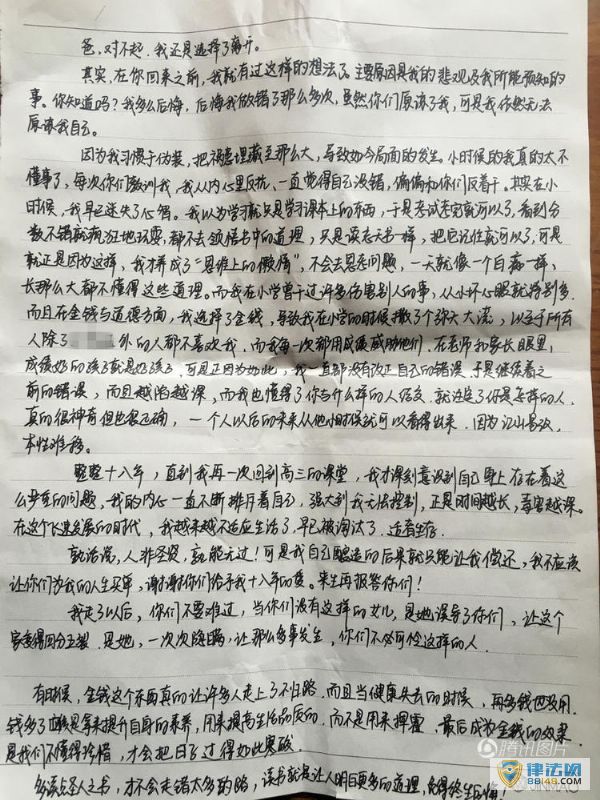 爸，对不起，我还是选择了离开。
其实，在你回来之前，我就有过这样的想法了。主要原因是我的悲观及我所能预知的
事。你知道吗？我多么后悔，后悔我做错了那么多次，虽然你们原谅了我，可是我依然无法
原谅我自己。
因为我习惯于伪装，把祸患埋藏至那么大，导致如今局面的发生。小时候的我真的太不
懂事了，每次你们教训我，我从内心里反抗，一直觉得自己没错，偏偏和你们反着干。其实在小
时候，我早已迷失了心智。我以为学习就只是学习课本上的东西，于是考试考完就可以了，看到分
数不错就疯狂地玩耍，都不去领悟书中的道理，只是读死书一样，把它记住就可以了，可是
就正是因为这样，我才养成了“思维上的懒惰”，不会去思考问题，一天就像一个白痴一样，
长那么大都不懂得这些道理。而我在小学曾干过许多伤害别人的事，从小坏心眼就特别多
而且在金钱与道德方面，我选择了金钱，导致我在小学的时候撒了个弥天大谎，以至于所有
人除了 外的人都不喜欢我，而我每一次都用成绩威胁他们。在老师和家长眼里，
成绩好的孩子就是好孩子，可是正因为如此，我一直都没有改正自己的错误，于是继续着之
前的错误，而且越滔越深，而我也懂得了你与什么样的人结交，就注定了你是怎样的人，
真的很神奇但也很正确，一个人以后的未来从他小时候就可以看得出来，因为江山易改，
本性难移。
整整十八年，直到我再一次回到高三的课堂，我才深刻意识到自己身上存在着这
么严重的问题，我的内心一直不断排斥着自己，强大到我无法控制，正是时间越长，毒害越深。
在这个飞速发展的时代，我越来越不适应生活了，早已被淘汰了，适者生存。
俗话说，人非圣贤，孰能无过！可是我自己酿造的后果就只能让我偿还，我不应该
让你们为我的人生买单，谢谢你们给予我十八年的爱。来生再报答你们！
我走了以后，你们不要难过，当你们没有这样的女儿，是她误导了你们，让这个
家变得四分五裂，是她，一次次隐瞒，让那么多事发生，你们不必可怜这样的人。
有时候，金钱这个东西真的让许多人走上了不归路，而且当健康失去的时候，再多钱也没用，
钱多了应该是拿来提升自身的素养，用来提高生活品质的，而不是用来挥霍，最后成为金钱的奴隶
是我们不懂得珍惜，才会把日子过得如此寒酸。
多读点圣人之书，才不会走错太多的路，读书就是让人明白更多的道理，免得终生后悔！
腾讯图片
律法网
8848.COM